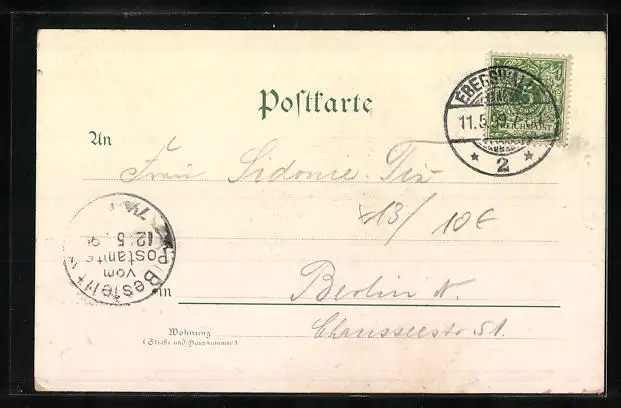 Postkarte
EBERSWALDE
5
REICHSPOST
11.5.99
2
An
Frau Sidonie Tix
13/ 10€
Bestellt
vom
Postamte
12.5.9
in Berlin N.
Wohnung
(Straße und Hausnummer)
Chausseestr 51.